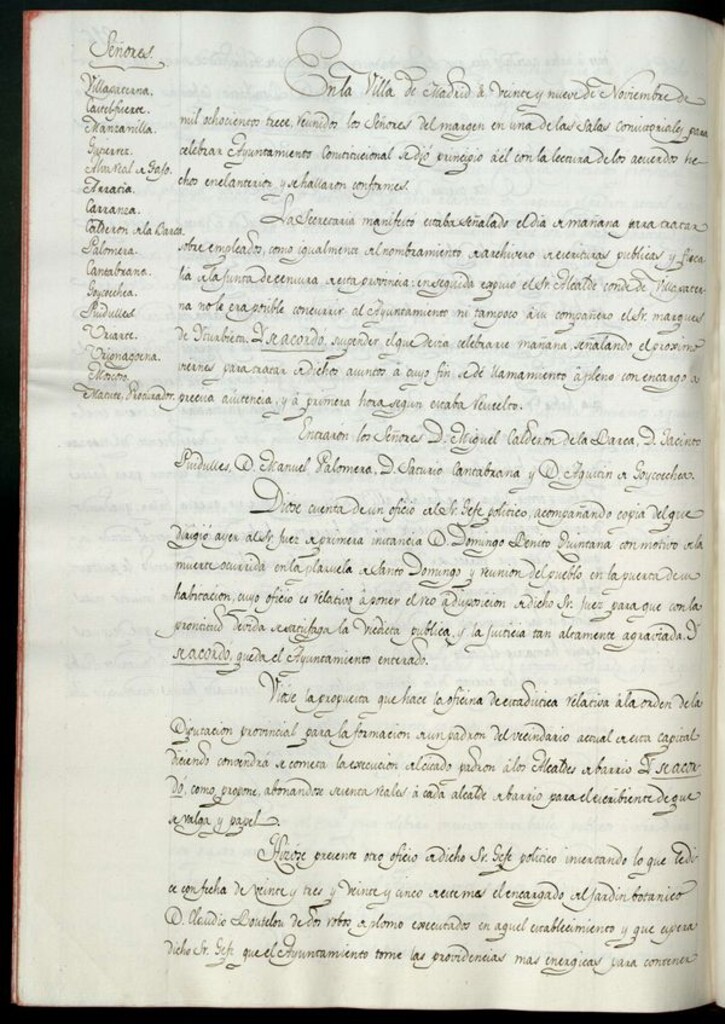 Señores.
Villapaterna.
Castelfuerte.
Manzanilla.
Gutierrez.
Alva Real de Tajo.
Arratia.
Carranza.
Calderon de la Barca.
Palomera.
Cantabrana.
Goycoechea.
Puidulles.
Uriarte.
Urionagoena.
Moscoso.
Matute, Procurador.
En la Villa de Madrid á veinte y nueve de Noviembre de
mil ochocientos trece, reunidos los Señores del margen en una de las Salas Consistoriales para
celebrar Ayuntamiento Constitucional se dió principio á él con la lectura de los acuerdos he-
chos en el anterior, y se hallaron conformes.
La Secretaria manifestó estaba señalado el dia de mañana para tratar
sobre empleados, como igualmente del nombramiento de archivero de escrituras publicas y fisca-
lia de la Junta de censura de esta provincia: en seguida expuso el Sr. Alcalde conde de Villapater-
na no le era posible concurrir al Ayuntamiento ni tampoco á su compañero el Sr. marques
de Yturbieta. Y se acordó, suspender el que devia celebrarse mañana, señalando el proximo
viernes para tratar de dichos asuntos á cuyo fin se dé llamamiento á pleno con encargo de
precisa asistencia, y á primera hora segun estaba resuelto.
Entraron los Señores D. Miguel Calderon de la Barca, D. Jacinto
Puidulles, D. Manuel Palomera, D. Saturio Cantabrana y D. Agustin de Goycoechea.
Diose cuenta de un oficio del Sr. Gefe politico, acompañando copia del que
dirigió ayer al Sr. Juez de primera instancia D. Domingo Benito Quintana con motivo de la
muerte ocurrida en la plazuela de Santo Domingo y reunion del pueblo, en la puerta de su
habitacion, cuyo oficio es relativo á poner el reo á disposicion de dicho Sr. Juez para que con la
prontitud devida se satisfaga la Vindicta publica, y la Justicia tan altamente agraviada. Y
se acordó, queda el Ayuntamiento enterado.
Viose la propuesta que hace la oficina de estadistica relativa á la orden de la
Diputacion provincial para la formacion de un padron del vecindario actual de esta capital
diciendo convendrá se cometa la execucion del citado padron á los Alcaldes de barrio. Y se acor-
dó, como propone, abonandose sesenta reales á cada alcalde de barrio para el escribiente de que
se valga, y papel.
Hizose presente otro oficio de dicho Sr. Gefe politico insertando lo que le di-
ce con fecha de veinte y tres y veinte y cinco de este mes el encargado del Jardin botanico
D. Claudio Boutelou de dos robos de plomo executados en aquel establecimiento y que espera
dicho Sr. Gefe que el Ayuntamiento tome las providencias mas energicas para contener